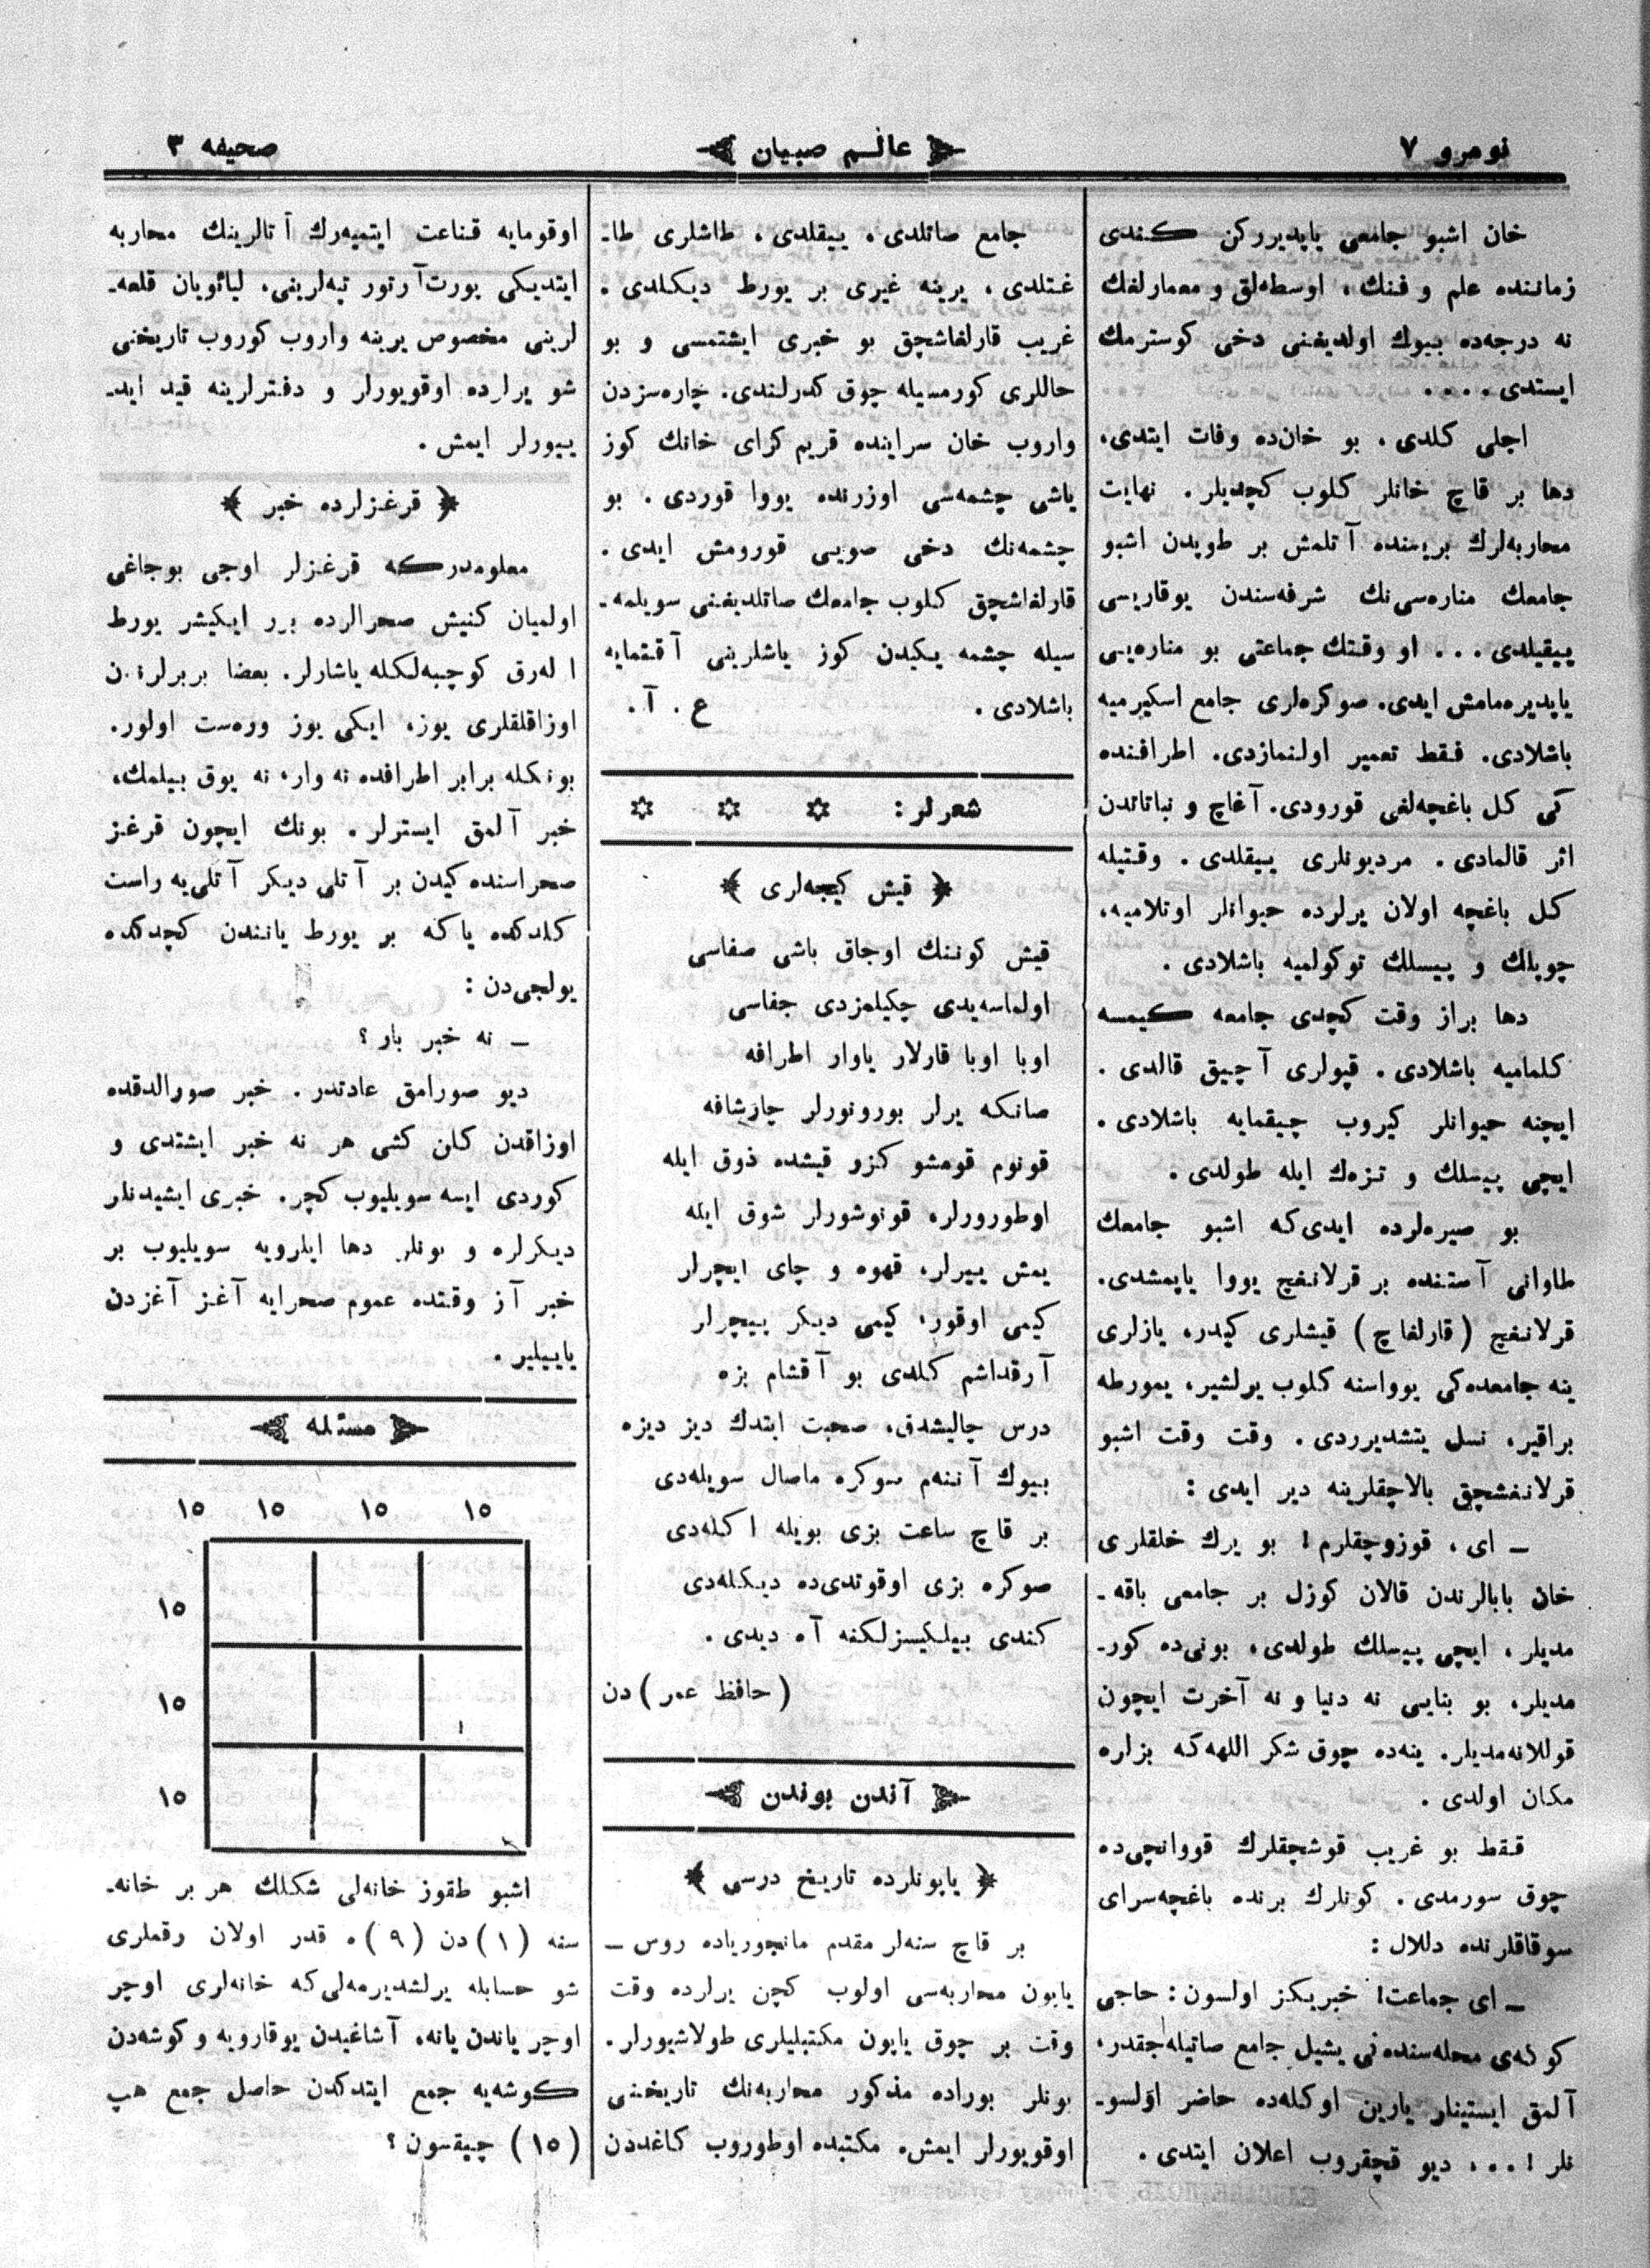 نومرو ٧
عالم صبيان
صحيفه ٣
خان اشبو جامعی ياپديرركن كندی
زماننده علم و فنك، اوسطه‌لق و معمارلغك
نه درجه‌ده بيوك اولديغنی دخی كوسترمك
ايستدی . . . .
اجلی كلدی، بو خان‌ده وفات ايتدی،
دها بر قاچ خانلر كلوب كچديلر. نهايت
محاربه‌لرك برينده آتلمش بر طوپدن اشبو
جامعك مناره‌سی‌نك شرفه‌سندن يوقاريسی
ييقيلدی . . . او وقتك جماعتی بو مناره‌يی
ياپديره‌مامش ايدی. صوكره‌لری جامع اسكيرميه
باشلادی. فقط تعمير اولنمازدی. اطرافنده
كی كل باغچه‌لغی قورودی. آغاچ و نباتاتدن
اثر قالمادی. مرديونلری ييقلدی. وقتيله
كل باغچه اولان يرلرده حيوانلر اوتلاميه،
چوپلك و پيسلك توكولميه باشلادی.
دها براز وقت كچدی جامعه كيمسه
كلماميه باشلادی. قپولری آچيق قالدی.
ايچنه حيوانلر كيروب چيقمايه باشلادی.
ايچی پيسلك و تزه‌ك ايله طولدی.
بو صيره‌لرده ايدی‌كه اشبو جامعك
طاوانی آستنده بر قرلانغچ يووا ياپمشدی.
قرلانغچ (قارلغاچ) قيشلری كيدر، يازلری
ينه جامعده‌كی يوواسنه كلوب يرلشير، يمورطه
براقير، نسل يتشديرردی. وقت وقت اشبو
قرلانغشچق بالاچقلرينه دير ايدی:
ـ ای، قوزوچقلرم! بو يرك خلقلری
خان بابالرندن قالان كوزل بر جامعی باقه‌ـ
مديلر، ايچی پيسلك طولدی، بونی‌ده كورـ
مديلر، بو بنايی نه دنيا و نه آخرت ايچون
قوللانه‌مديلر. ينه‌ده چوق شكر اللهه‌كه بزلره
مكان اولدی.
فقط بو غريب قوشچقلرك قووانچی‌ده
چوق سورمدی. كونلرك برنده باغچه‌سرای
سوقاقلرنده دللال:
ـ ای جماعت! خبريكز اولسون: حاجی
كوئه‌ی محله‌سنده‌ئی يشيل جامع صاتيله‌جقدر،
آلمق ايستينلر يارين اوكله‌ده حاضر اولسوـ
نلر ! . . ، ديو قچقروب اعلان ايتدی.
جامع صاتلدی، ييقلدی، طاشلری طاـ
غتلدی، يرينه غيری بر يورط ديكلدی.
غريب قارلغاشچق بو خبری ايشتمسی و بو
حاللری كورمسيله چوق كدرلندی. چاره‌سزدن
واروب خان سراينده قريم كرای خانك كوز
ياشی چشمه‌سی اوزرنده يووا قوردی. بو
چشمه‌نك دخی صويی قورومش ايدی.
قارلغاشچق كلوب جامعك صاتلديغنی سويلمه‌ـ
سيله چشمه يكيدن كوز ياشلرينی آقتمايه
باشلادی. ع. آ.
شعرلر:
قيش كيجه‌لری
قيش كوننك اوجاق باشی صفاسی
اولماسه‌يدی چكيلمزدی جفاسی
اوبا اوبا قارلار ياوار اطرافه
صانكه يرلر بورونورلر چارشافه
قونوم قومشو كزو قيشده ذوق ايله
اوطورورلر، قونوشورلر شوق ايله
يمش ييرلر، قهوه و چای ايچرلر
كيمی اوقور، كيمی ديكر بيچرلر
آرقداشم كلدی بو آقشام بزه
درس چاليشدق، صحبت ايتدك ديز ديزه
بيوك آننه‌م صوكره ماصال سويله‌دی
بر قاچ ساعت بزی بويله اكله‌دی
صوكره بزی اوقوتدی‌ده ديكله‌دی
كندی بيلكيسزلكنه آه ديدی.
(حافظ عمر) دن
آندن بوندن
ياپونلرده تاريخ درسی
بر قاچ سنه‌لر مقدم مانجورياده روس ـ
ياپون محاربه‌سی اولوب كچن يرلرده وقت
وقت بر چوق ياپون مكتبليلری طولاشيورلر.
بونلر بوراده مذكور محاربه‌نك تاريخنی
اوقويورلر ايمش. مكتبده اوطوروب كاغددن
اوقومايه قناعت ايتميه‌رك آتالرينك محاربه
ايتديكی پورت‌آرتور تپه‌لرينی، ليائويان قلعه‌ـ
لرينی مخصوص يرينه واروب كوروب تاريخنی
شو يرلرده اوقويورلر و دفترلرينه قيد ايدـ
ييورلر ايمش.
قرغزلرده خبر
معلومدركه قرغزلر اوجی بوجاغی
اولميان كنيش صحرالرده برر ايكيشر يورط
اله‌رق كوچبه‌لكله ياشارلر. بعضا بربرلرندن
اوزاقلقلری يوز، ايكی يوز ورست اولور.
بونكله برابر اطرافده نه وار، نه يوق بيلمك،
خبر آلمق ايسترلر. بونك ايچون قرغز
صحراسنده كيدن بر آتلی ديكر آتلی‌يه راست
كلدكده ياكه بر يورط ياننده‌ن كچدكده
يولجی‌دن:
ـ نه خبر بار؟
ديو صورامق عادتدر. خبر صورالدقده
اوزاقدن كلن كشی هر نه خبر ايشتدی و
كوردی ايسه سويليوب كچر. خبری ايشيدنلر
ديكرلره و بونلر دها ايلرويه سويليوب بر
خبر آز وقتده عموم صحرايه آغز آغزدن
يايپيلير.
مسئله
١٥ ١٥ ١٥ ١٥
١٥
١٥
١٥
اشبو طقوز خانه‌لی شكلك هر بر خانه‌ـ
سنه (١) دن (٩)ه قدر اولان رقملری
شو حسابله يرلشديرمه‌لی‌كه خانه‌لری اوچر
اوچر ياندن يانه، آشاغيدن يوقارويه و كوشه‌دن
كوشه‌يه جمع ايتدكدن حاصل جمع هپ
(١٥) چيقسون؟